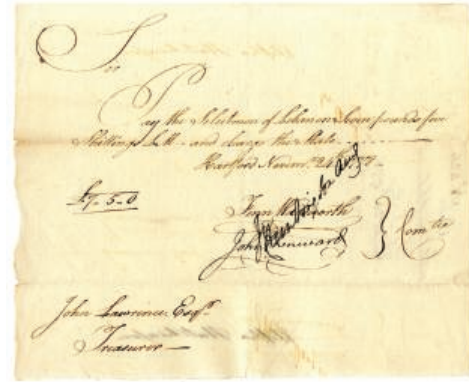 Sir
Pay the Selectmen of Lebanon Seven pounds five
Shillings L M - and charge the State
Hartford Novem 24th
£7-5-0
Fenn Wadsworth
John Kenward } Com tee
John Lawrence Esqr
Treasurer